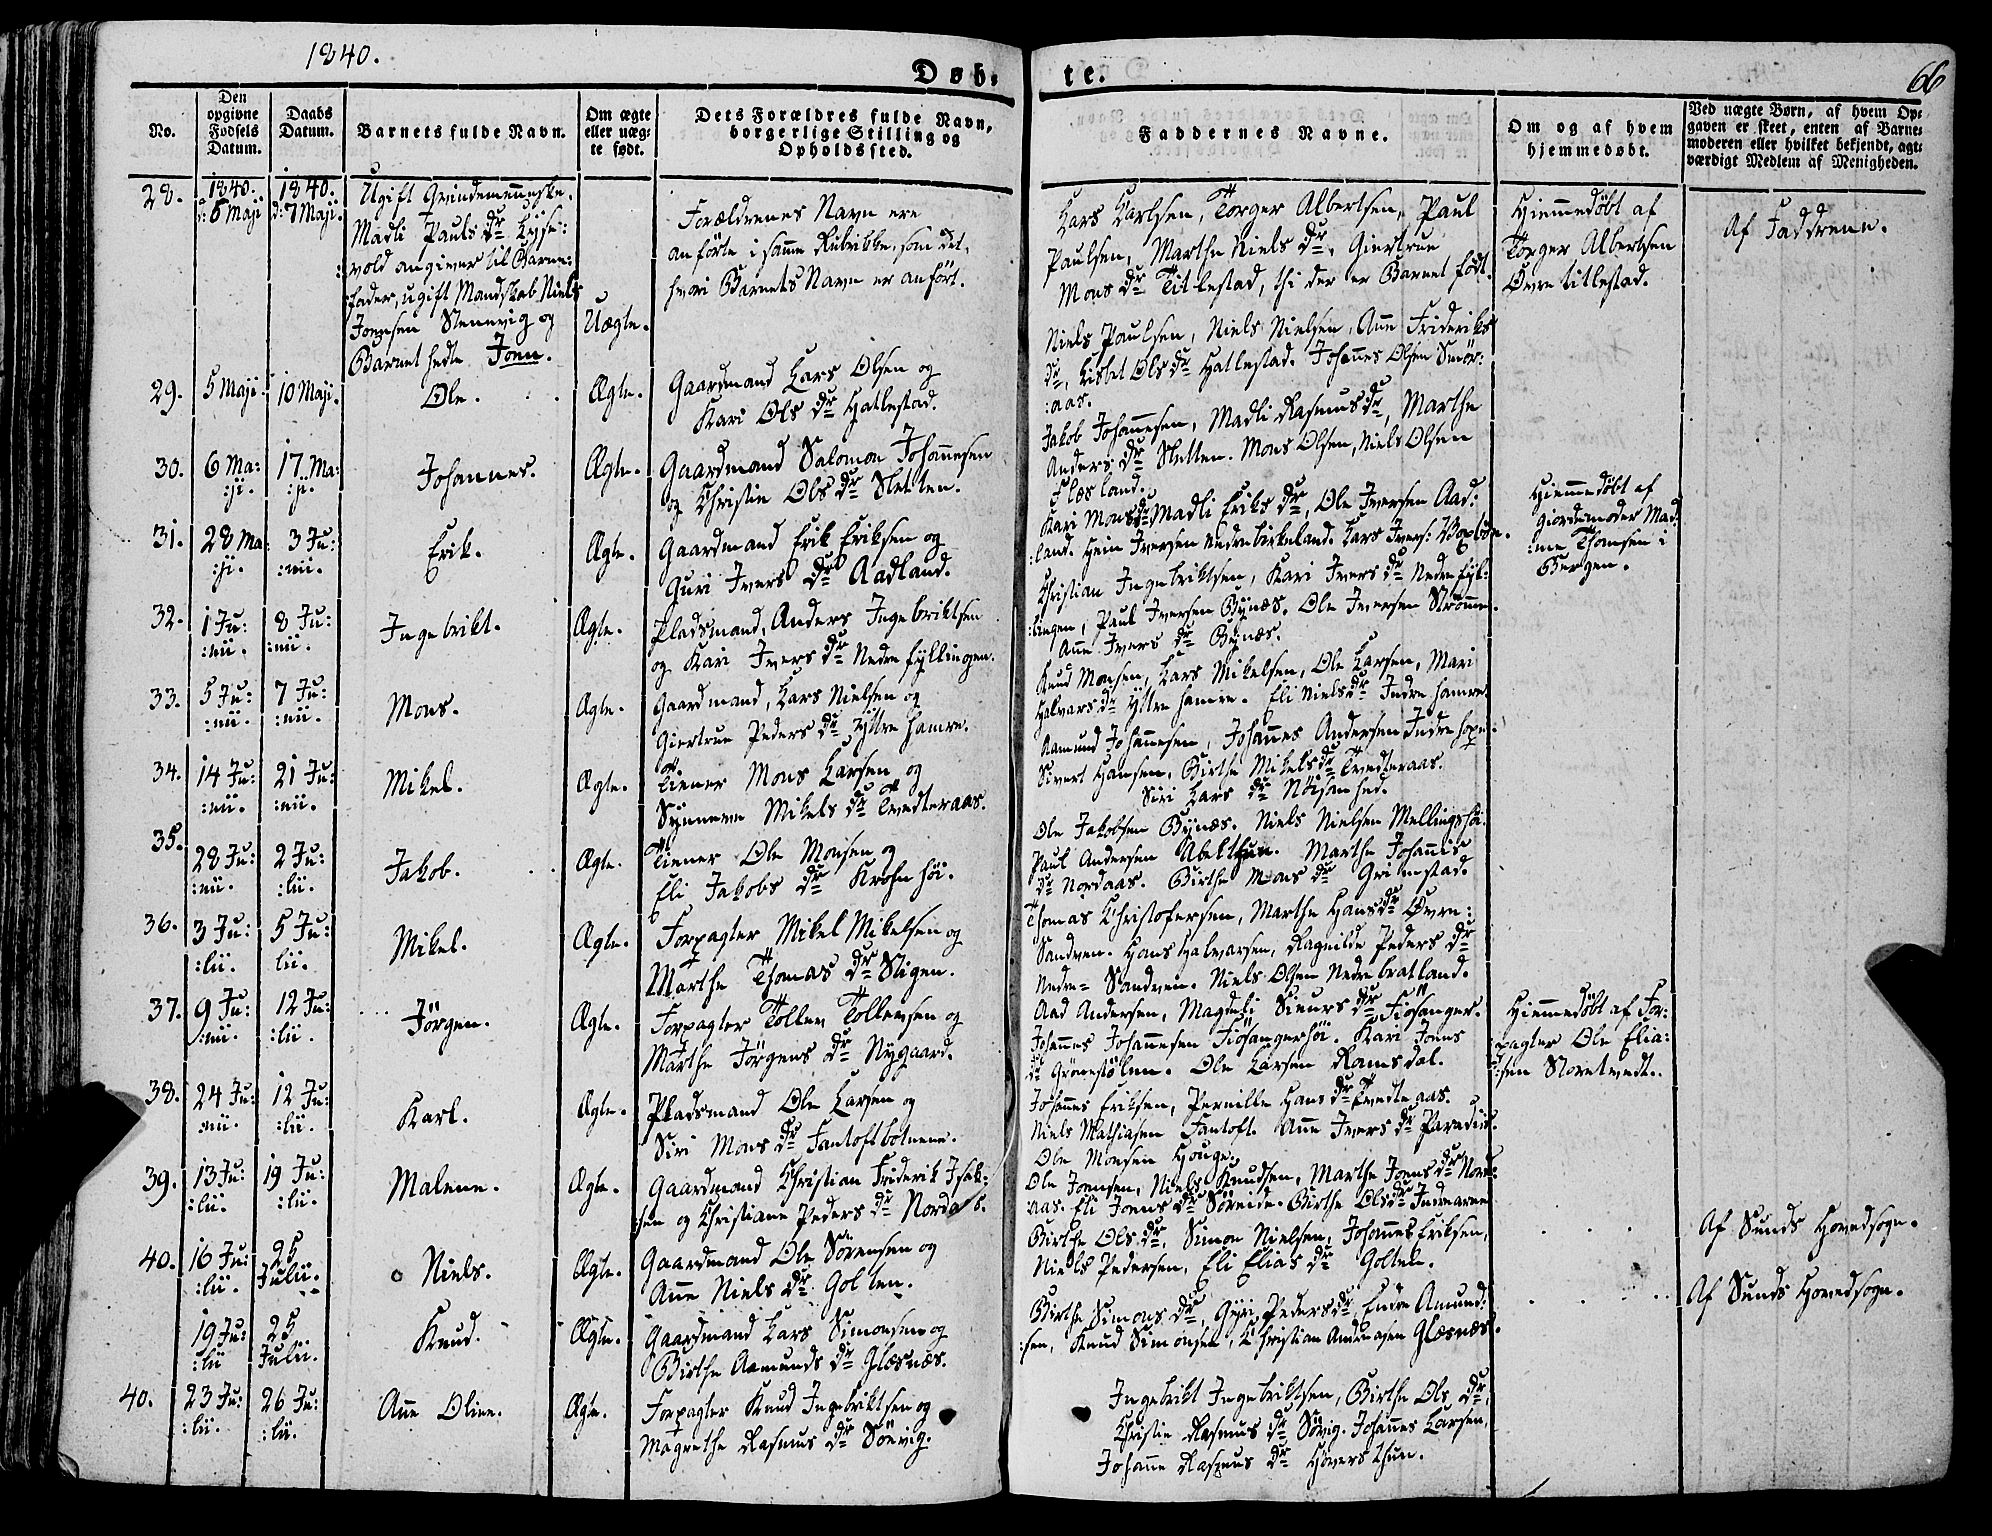 1840.
Døb-
te.
66
No.
Den
opgivne
Fødsels
Datum.
Daabs
Datum.
Barnets fulde Navn.
Om ægte
eller uæg-
te født.
Dets Forældres fulde Navn,
borgerlige Stilling og
Opholdssted.
Faddernes Navne.
Om og af hvem
hjemmedøbt.
Ved uægte Børn, af hvem Op-
gaven er skeet, enten af Barne-
moderen eller hvilket bekjendt, agt-
værdigt Medlem af Menigheden.
28.
1840.
d: 6 Maji
1840.
d: 7 Maji.
Ugift Qvindemenneske,
Madli Pauls dr Lyse:
:vold angiver til Barne:
:fader, ugift Mandskab Niels
Joensen Stennevig og
Barnet hedte Joen.
Uægte.
Forældrenes Navn ere
anførte i samme Rubrikke, som det,
hvori Barnets Navn er anført.
Lars Carlsen, Torger Albertsen, Paul
Paulsen, Marthe Niels dr, Giertrue
Mons dr Titlestad, thi der er Barnet født.
Hiemmedøbt af
Torger Albertsen
Øvre titlestad.
Af Faddrene.
29.
5 Maji
10 Maji.
Ole.
Ægte.
Gaardmand Lars Olsen og
Kari Ols dr Hatlestad.
Niels Paulsen, Niels Nielsen, Ane Frideriks
dr, Lisbet Ols dr Hatlestad. Johannes Olsen Smør:
:aas.
30.
6 Ma:
:ji.
17. Ma:
:ji.
Johannes.
Ægte.
Gaardmand Salomon Johannesen
og Christie Ols dr Sletten.
Jakob Johannesen, Madli Rasmus dr, Marthe
Anders dr Sletten. Mons Olsen, Niels Olsen
Flesland.
31.
28 Ma
:ji.
3 Ju:
:nii.
Erik.
Ægte.
Gaardmand Erik Eriksen og
Guri Ivers dr Aadland.
Kari Mons dr, Madli Eriks dr, Ole Iversen Aad:
:land. Hein Iversen Nedrebirkeland. Lars Ivers:
Hiemmedøbt af
Giordemoder Mad:
:me Thomsen i
Bergen.
32.
1 Ju:
:nii.
8 Ju:
:nii.
Ingebrikt.
Ægte.
Pladsmand, Anders Ingebriktsen
og Kari Ivers dr Nedre fyllingen.
Christian Ingebriktsen, Kari Ivers dr Nedre fyl:
:lingen, Paul Iversen Bynæs. Ole Iversen Strømme.
Ane Ivers dr Bynæs.
33.
5 Ju:
:nii.
7 Ju:
:nii.
Mons.
Ægte.
Gaardmand, Lars Nielsen og
Giertrue Peders dr Yttre hamre.
Knud Monsen, Lars Mikelsen, Ole Larsen, Mari
Halvars dr Yttre hamre. Eli Niels dr Indre hamre.
34.
14 Ju:
:nii.
21 Ju:
:nii.
Mikel.
Ægte.
Tiener Mons Larsen og
Synneve Mikels dr Tvedteraas.
Aamund Johannesen, Johannes Andersen Indre hope.
Sivert Hansen, Birthe Mikels dr Tvedteraas.
Siri Lars dr
35.
28 Ju:
:nii.
2 Ju:
:lii.
Jakob.
Ægte.
Tiener Ole Monsen og
Eli Jakobs dr Krohnhøi.
Ole Jakobsen Bynæs. Niels Nielsen Mellingshøi.
Paul Andersen Abelthun. Marthe Johannis
dr Nordaas. Birthe Mons dr Grimstad.
36.
3 Ju:
:lii.
5 Ju:
lii.
Mikel.
Ægte.
Forpagter Mikel Mikelsen og
Marthe Thomas dr Stigen.
Thomas Christofersen, Marthe Hans dr Øvre:
Sandven. Hans Halvarsen, Ragnilde Peders dr
Nedre- Sandven. Niels Olsen Nedre bratland.
37.
9 Ju:
:nii.
12 Ju:
:lii.
Jørgen.
Ægte.
Forpagter Tollev Tollevsen og
Marthe Jørgens dr Nygaard.
Aad Andersen, Magdeli Siurs dr Fiøsanger.
Johannes Johannesen Fiøsangerhøi. Kari Joens
dr Grønestølen. Ole Larsen Ramsdal.
Hiemmedøbt af For:
:pagter Ole Elia:
:sen Storetvedt.
38.
24 Ju:
:nii.
12 Ju:
:lii.
Karl.
Ægte.
Pladsmand Ole Larsen og
Siri Mons dr Fantoftbotnene.
Johannes Eriksen, Pernille Hans dr Tvedteaas.
Niels Mathiasen Fantoft. Ane Ivers dr Paradiis.
Ole Monsen Houge.
39.
13 Ju:
:lii.
19 Ju:
:lii.
Malene.
Ægte.
Gaardmand Christian Friderik Isak:
:sen og Christiane Peders dr Nordaas.
Ole Joensen, Niels Knudsen, Marthe Joens dr Nord:
aas. Eli Joens dr Søreide. Birthe Ols dr Indrearne
40.
16 Ju:
:lii.
25
Julii.
Niels.
Ægte.
Gaardmand Ole Sørensen og
Ane Niels dr Golten.
Birthe Ols dr, Simon Nielsen, Johannes Eriksen,
Niels Pedersen, Eli Elias dr Golten.
Af Sunds Hovedsogn.
19 Ju:
:lii
25
Julii.
Knud.
Ægte.
Gaardmand Lars Simonsen og
Birthe Aamunds dr Glesnæs.
Birthe Simons dr, Gyri Peders dr, Endre Amund:
:sen, Knud Simonsen, Christian Andreasen Glesnæs.
Af Sunds Hovedsogn.
40.
23 Ju:
:lii.
26 Ju:
:lii.
Ane Oline.
Ægte.
Forpagter Knud Ingebriktsen og
Magrethe Rasmus dr Sørvig.
Ingebrikt Ingebriktsen, Birthe Ols dr,
Christie Rasmus dr Sørvig. Johannes Larsen,
Johanne Rasmus dr Høversthun.